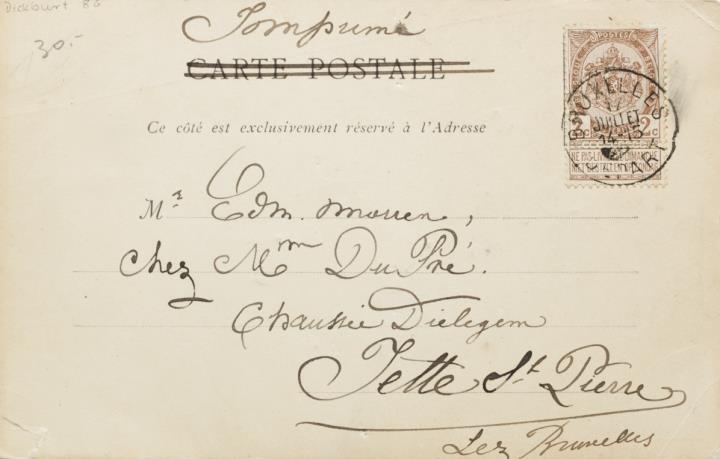 Dickburt BG
30.-
Imprimé
CARTE POSTALE
Ce côté est exclusivement réservé à l'Adresse
Mr Edm. Morren,
chez Mm DuPré.
Chaussée Dielegem
Jette St Pierre
Lez Bruxelles
POSTES
2 c
NE PAS LIVRER LE DIMANCHE
BRUXELLES
JUILLET
14-15
DÉPART